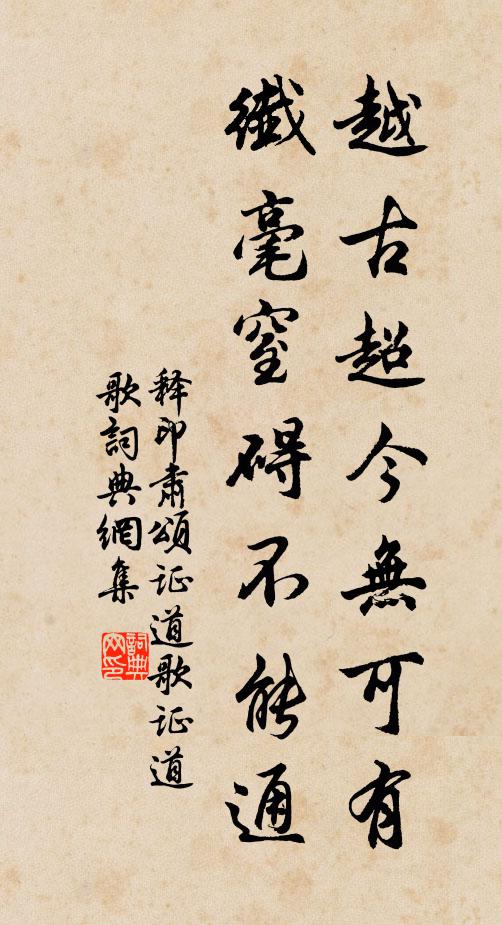 越古超今無可有
纖毫窒碍不能通
释印肃頌证道歌证道
歌詞典網集
詞典
网印